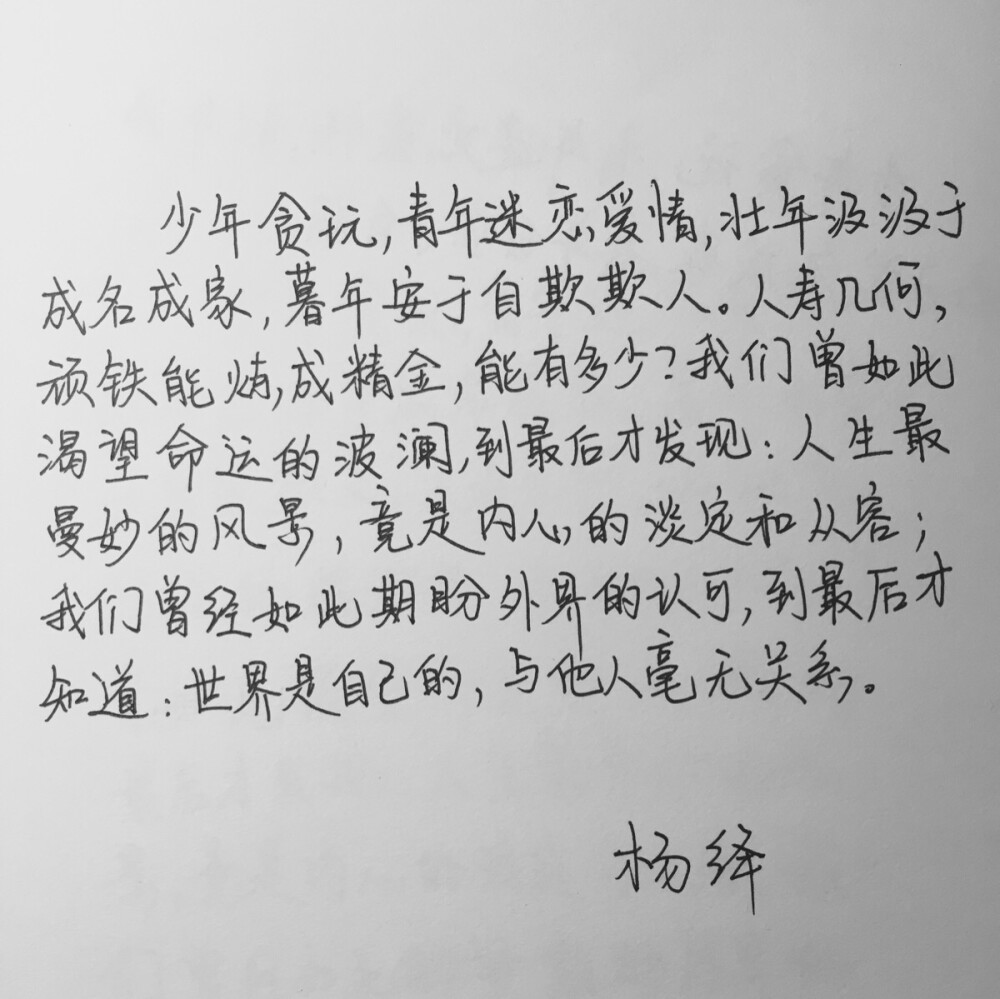 少年贪玩，青年迷恋爱情，壮年汲汲于
成名成家，暮年安于自欺欺人。人寿几何，
顽铁能炼成精金，能有多少？我们曾如此
渴望命运的波澜，到最后才发现：人生最
曼妙的风景，竟是内心的淡定和从容；
我们曾经如此期盼外界的认可，到最后才
知道：世界是自己的，与他人毫无关系。
杨绛